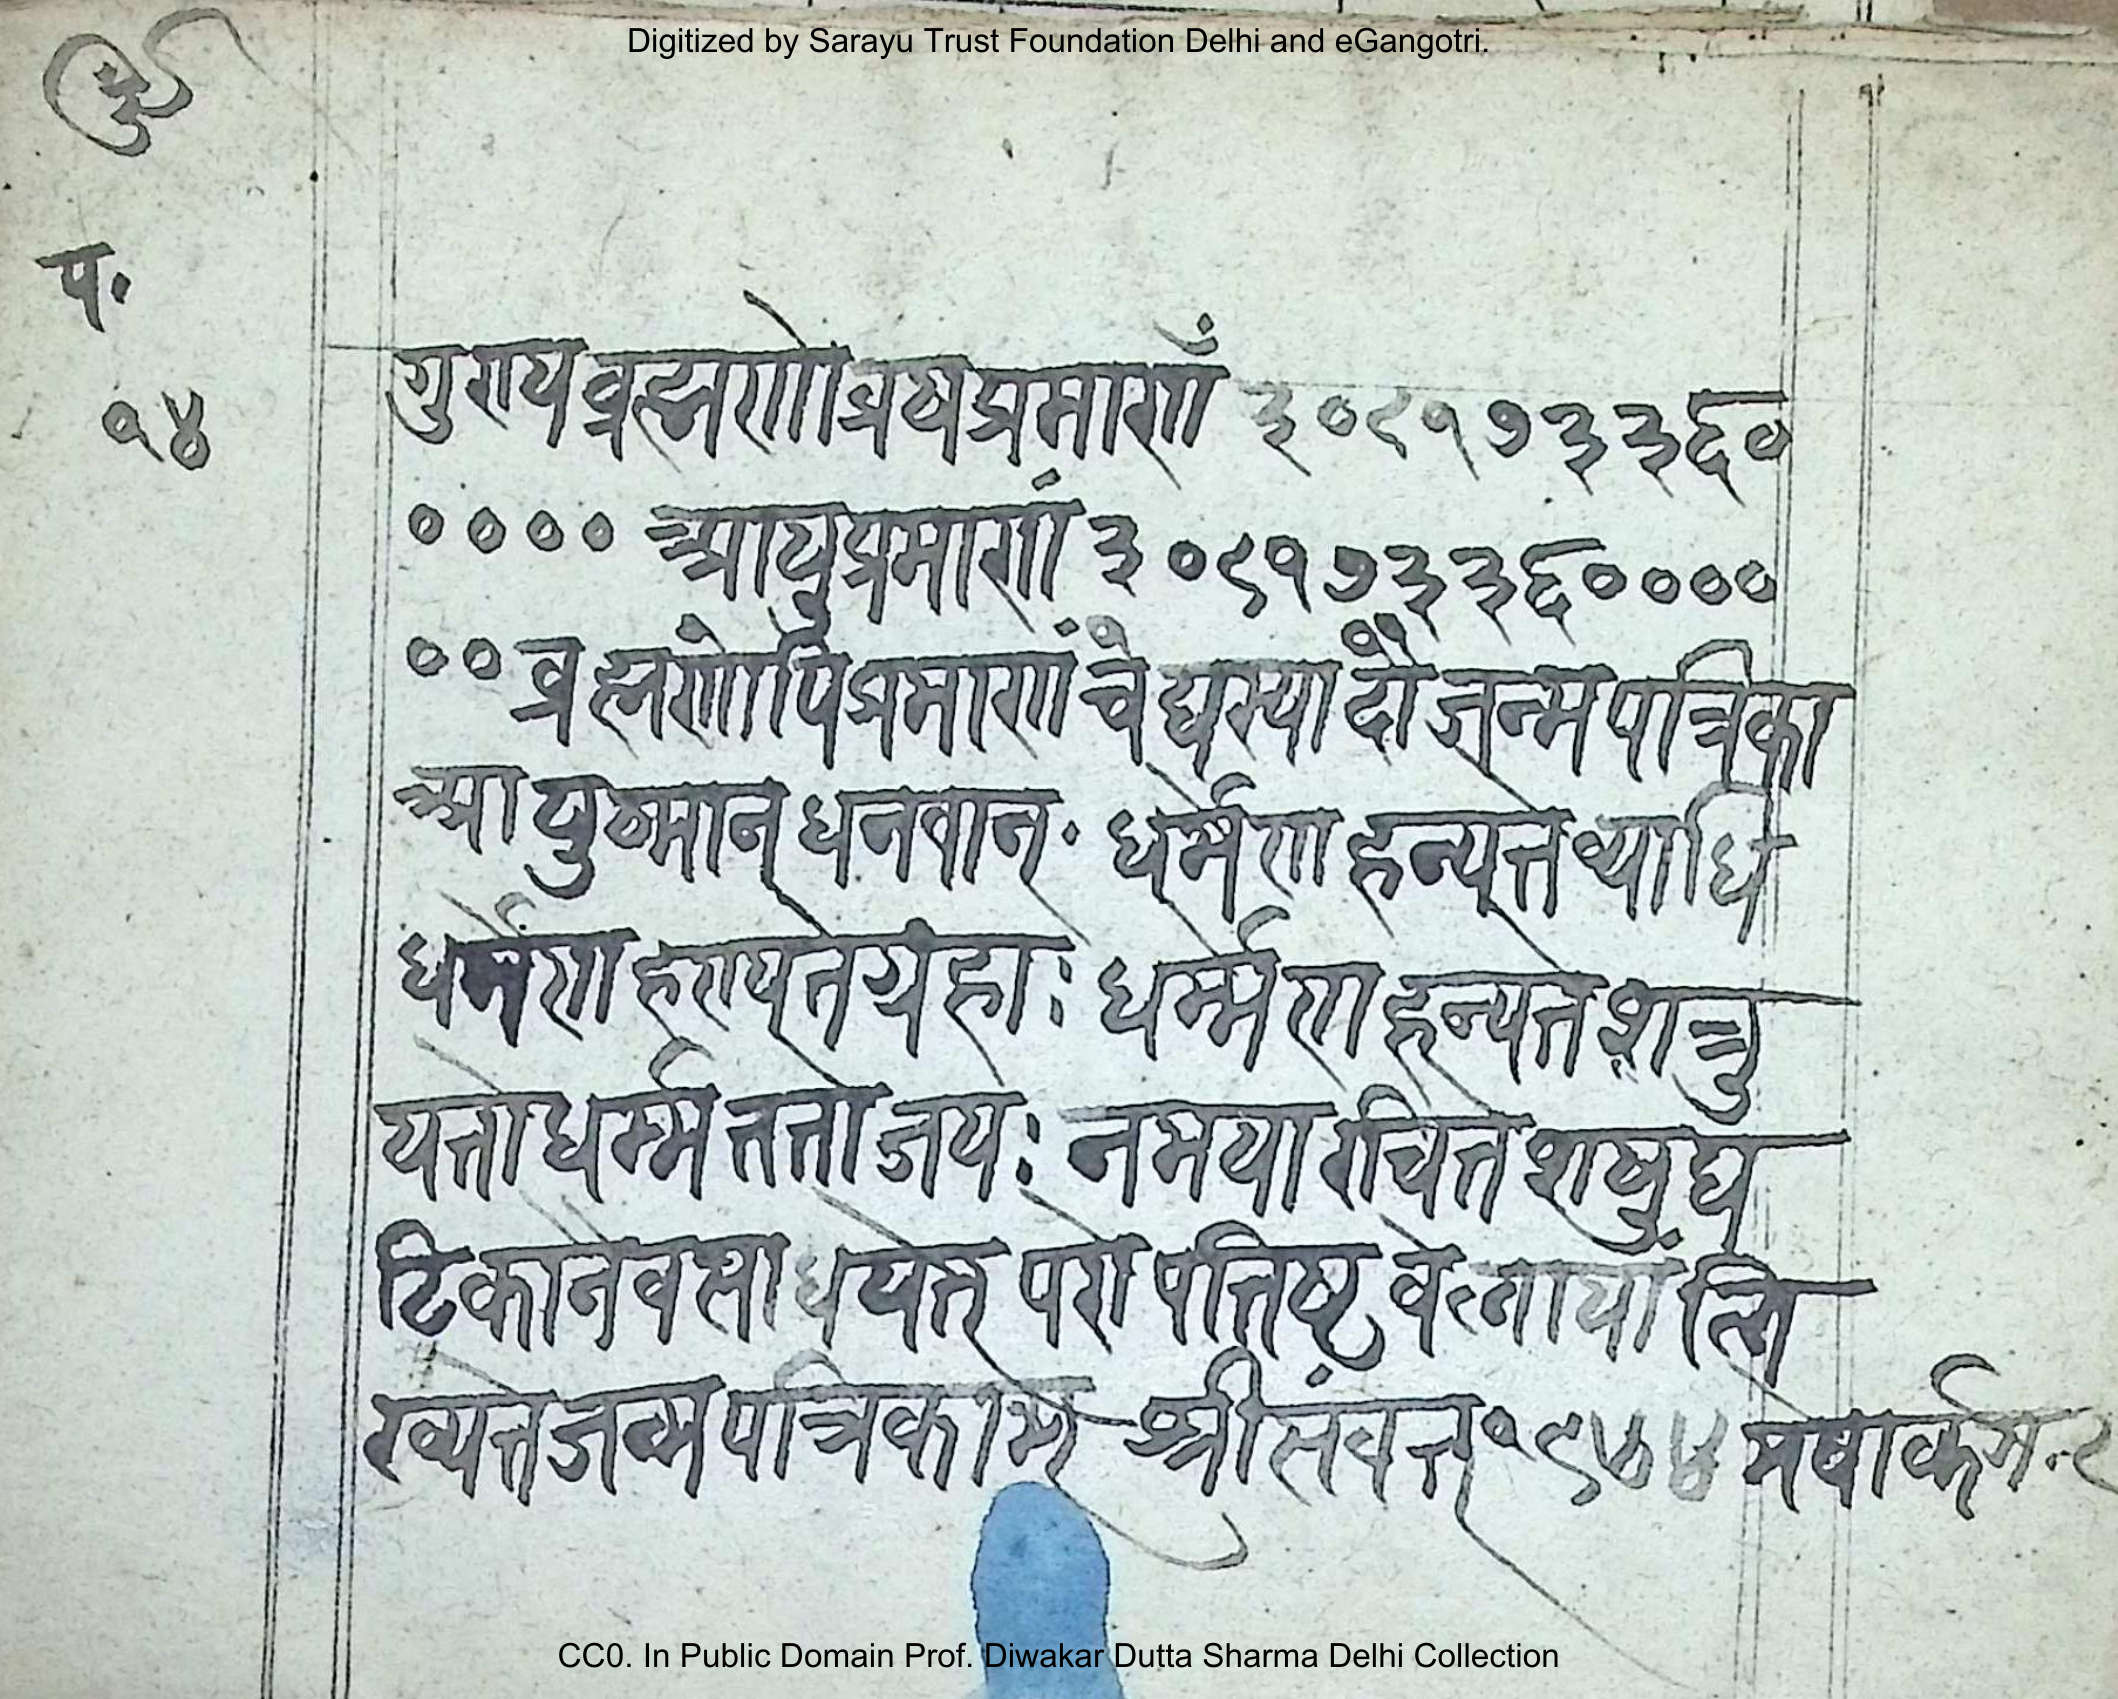 Digitized by Sarayu Trust Foundation Delhi and eGangotri.
प.
१४
गुणयब्रह्मणोब्रषप्रमाणँ ३०९१७३३६०
०००० आयुप्रमाणं ३०९१७३३६००००
०० ब्रह्मणोपिप्रमाणं चेद्यस्यादौ जन्मपत्रिका
आयुष्मान् धनवान् · धर्मेण हन्यते व्याधि
धर्मेण हण्यते ग्रहाः धर्म्मेण हन्यते शत्रु
यतो धर्म्म ततो जयः नमया रचित शषुघ
टिकानेव साधयेत् परोपतिष्ट वेलायां लि
ख्यते जन्मपत्रिकाम् श्रीसंवत् १९७४ मेषार्कग
CC0. In Public Domain Prof. Diwakar Dutta Sharma Delhi Collection